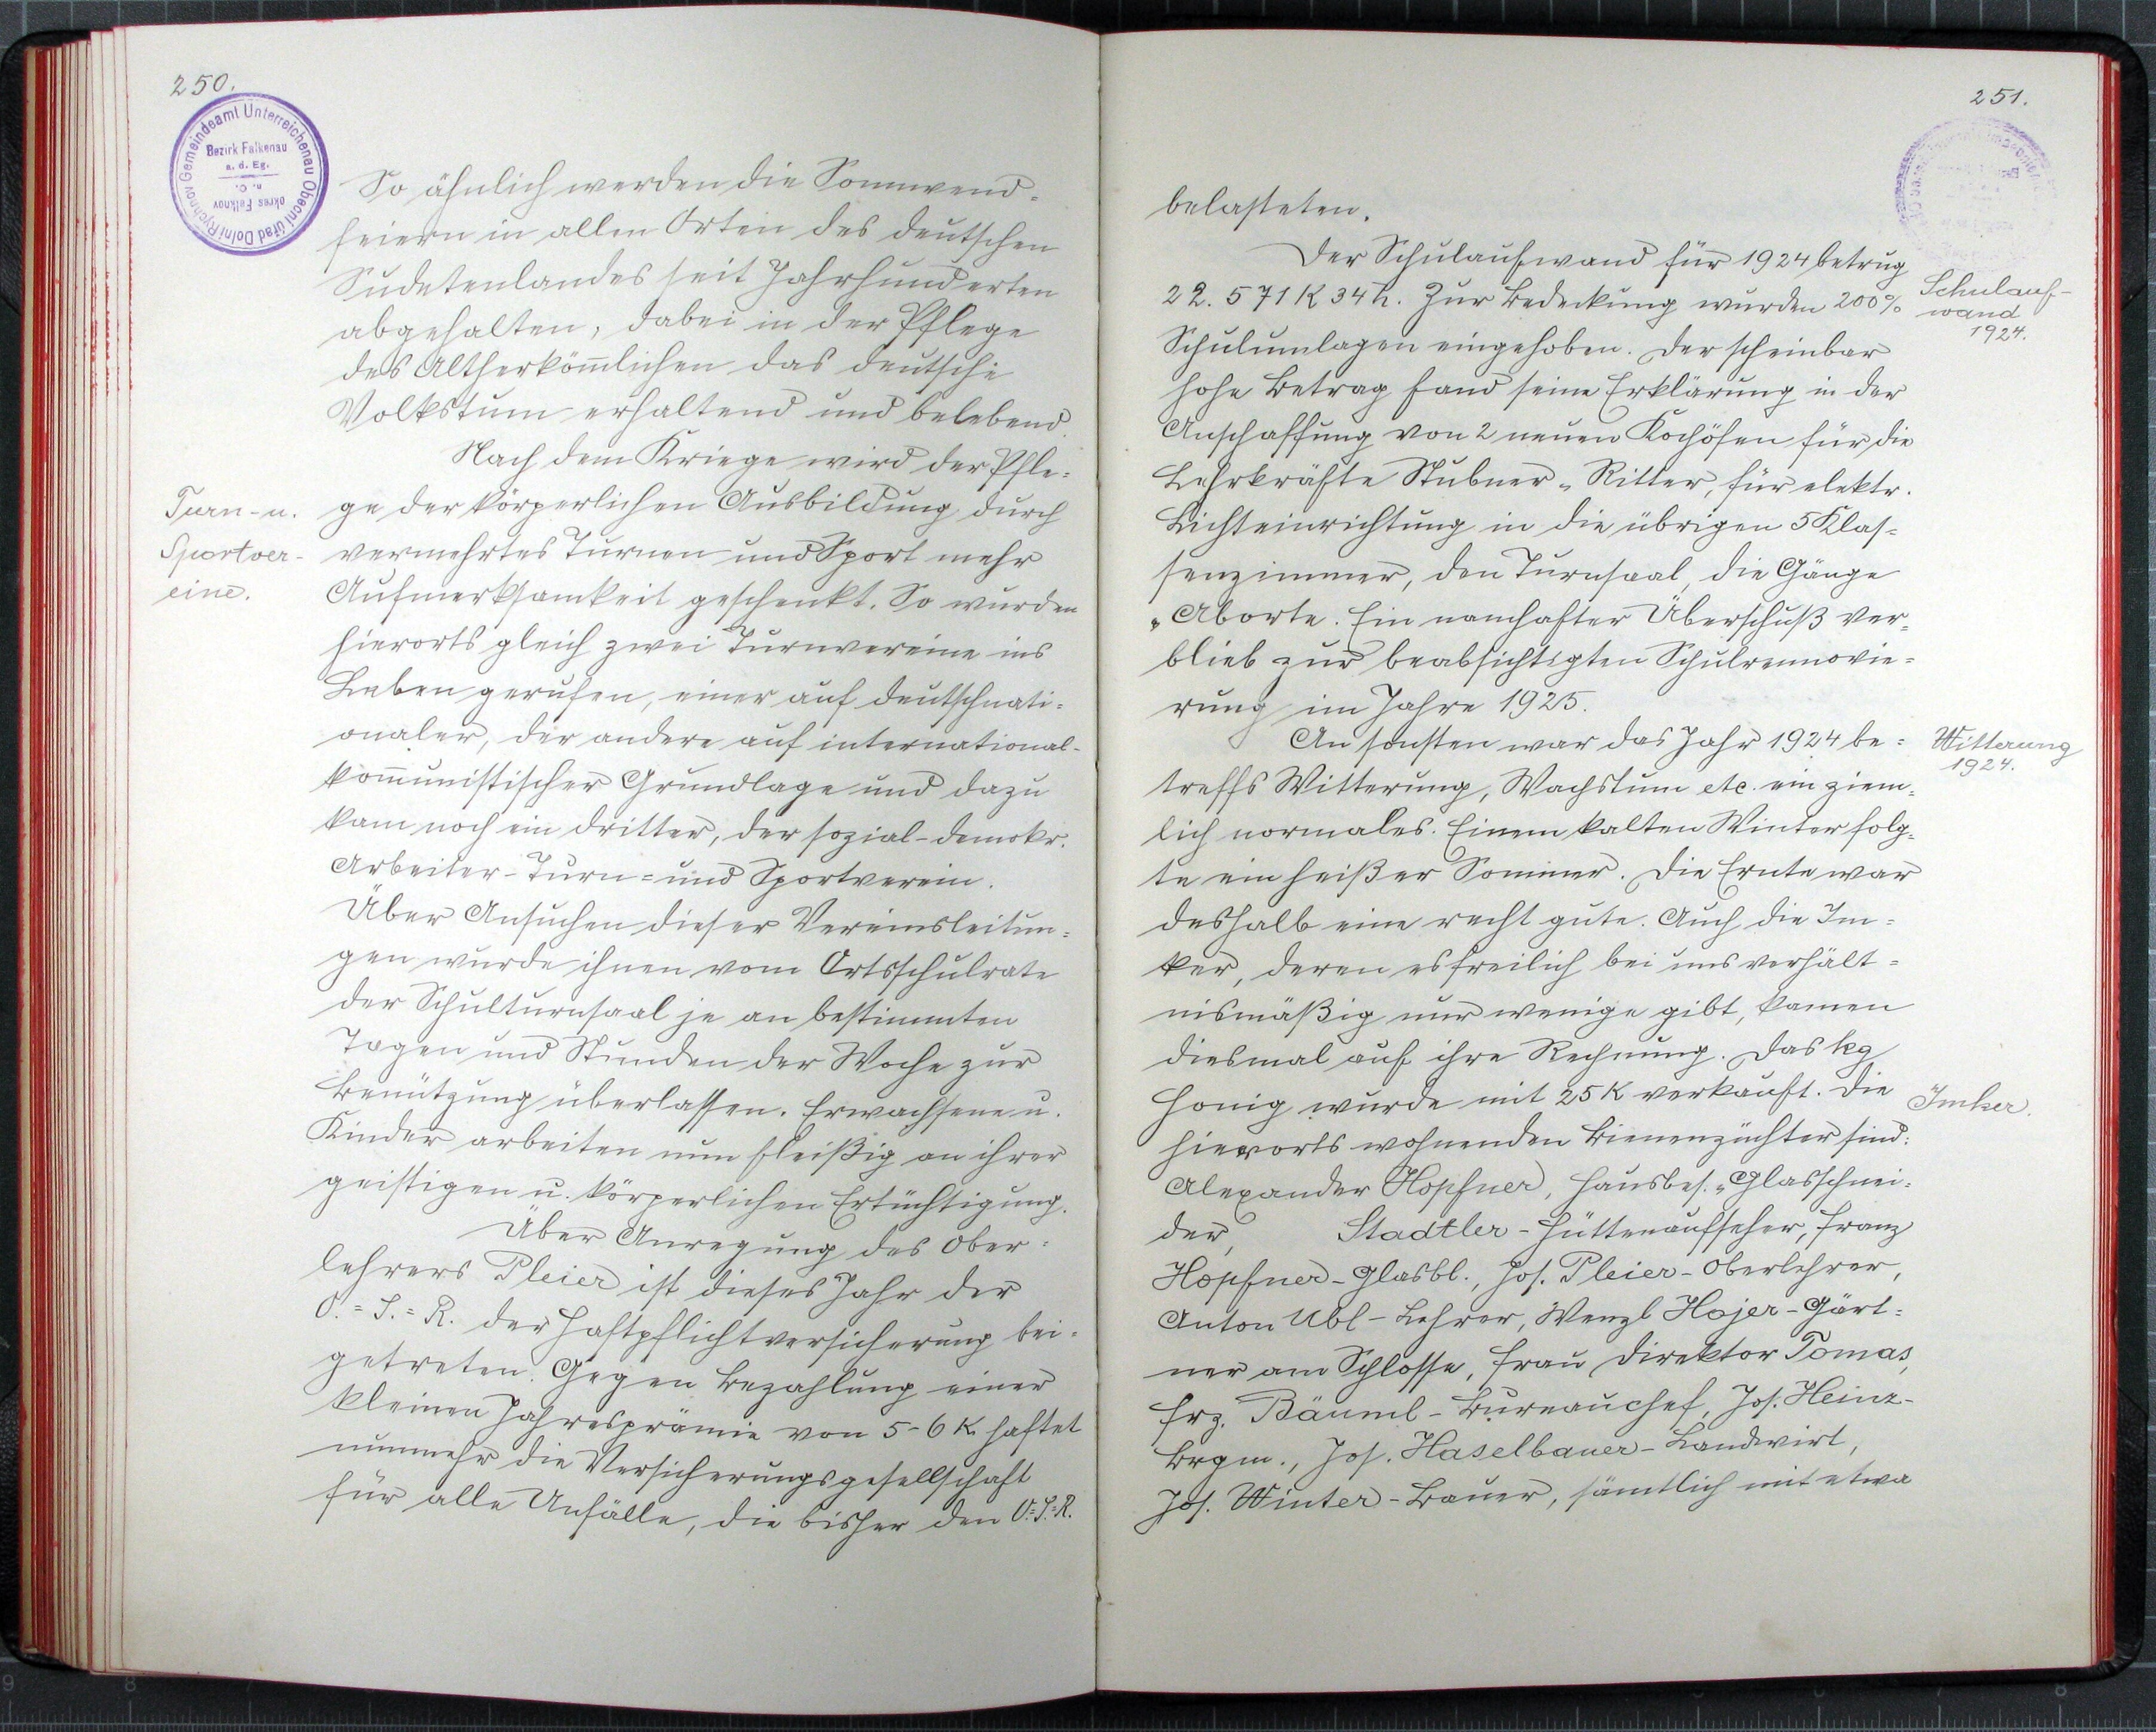 250.
Gemeindeamt Unterreichenau
Bezirk Falkenau
a. d. Eg.
n. O.
okres Falknov
Obecní úřad Dolní Rychnov
So ähnlich werden die Sonnwend-
feiern in allen Orten des deutschen
Sudetenlandes seit Jahrhunderten
abgehalten, dabei in der Pflege
des Altherkömlichen das deutsche
Volkstum erhaltend und belebend.
Nach dem Kriege wird der Pfle-
Turn- u.
Sportver-
eine.
ge der körperlichen Ausbildung durch
vermehrtes Turnen und Sport mehr
Aufmerksamkeit geschenkt. So wurden
hierorts gleich zwei Turnvereine ins
Leben gerufen, einer auf deutschnati-
onaler, der andere auf international-
komunistischer Grundlage und dazu
kam noch ein dritter, der sozial-demokr.
Arbeiter-Turn- und Sportverein.
Über Ansuchen dieser Vereinsleitun-
gen wurde ihnen vom Ortsschulrate
der Schulturnsaal je an bestimmten
Tagen und Stunden der Woche zur
Benützung überlassen. Erwachsene u.
Kinder arbeiten nun fleißig an ihrer
geistigen u. körperlichen Ertüchtigung.
Über Anregung des Ober-
lehrers Pleier ist dieses Jahr der
O.=S.=R. der Haftpflichtversicherung bei-
getreten. Gegen Bezahlung einer
kleinen Jahresprämie von 5-6 K haftet
nunmehr die Versicherungsgesellschaft
für alle Unfälle, die bisher den O.=S.=R.
251.
belasteten.
Der Schulaufwand für 1924 betrug
22.571 K 34 h. Zur Bedeckung wurden 200%
Schulauf-
wand
1924.
Schulumlagen eingehoben. Der scheinbar
hohe Betrag fand seine Erklärung in der
Anschaffung von 2 neuen Kochöfen für die
Lehrkräfte Stubner " Ritter, für elektr.
Lichteinrichtung in die übrigen 5 Klas-
senzimmer, den Turnsaal, die Gänge
" Aborte. Ein namhafter Überschuß ver-
blieb zur beabsichtigten Schulrennovie-
rung im Jahre 1925.
An sonsten war das Jahr 1924 be-
Witterung
1924.
treffs Witterung, Wachstum etc. ein ziem-
lich normales. Einem kalten Winter folg-
te ein heißer Sommer. Die Ernte war
deshalb eine recht gute. Auch die Im-
ker, deren es freilich bei uns verhält-
nismäßig nur wenige gibt, kamen
diesmal auf ihre Rechnung. Das kg
Honig wurde mit 25 K verkauft. Die
Imker.
hierorts wohnenden Bienenzüchter sind:
Alexander Hopfner, Hausbes. " Glasschnei-
der, Stadtler - Hüttenaufseher, Franz
Hopfner - Glasbl., Jos. Pleier - Oberlehrer,
Anton Ubl - Lehrer, Wenzl Hojer - Gärt-
ner am Schlosse, Frau Direktor Tomas,
Frz. Bäuml - Bureauchef, Jos. Heinz -
Brgm., Jos. Haselbauer - Landwirt,
Jos. Winter - Bauer, sämtlich mit etwa